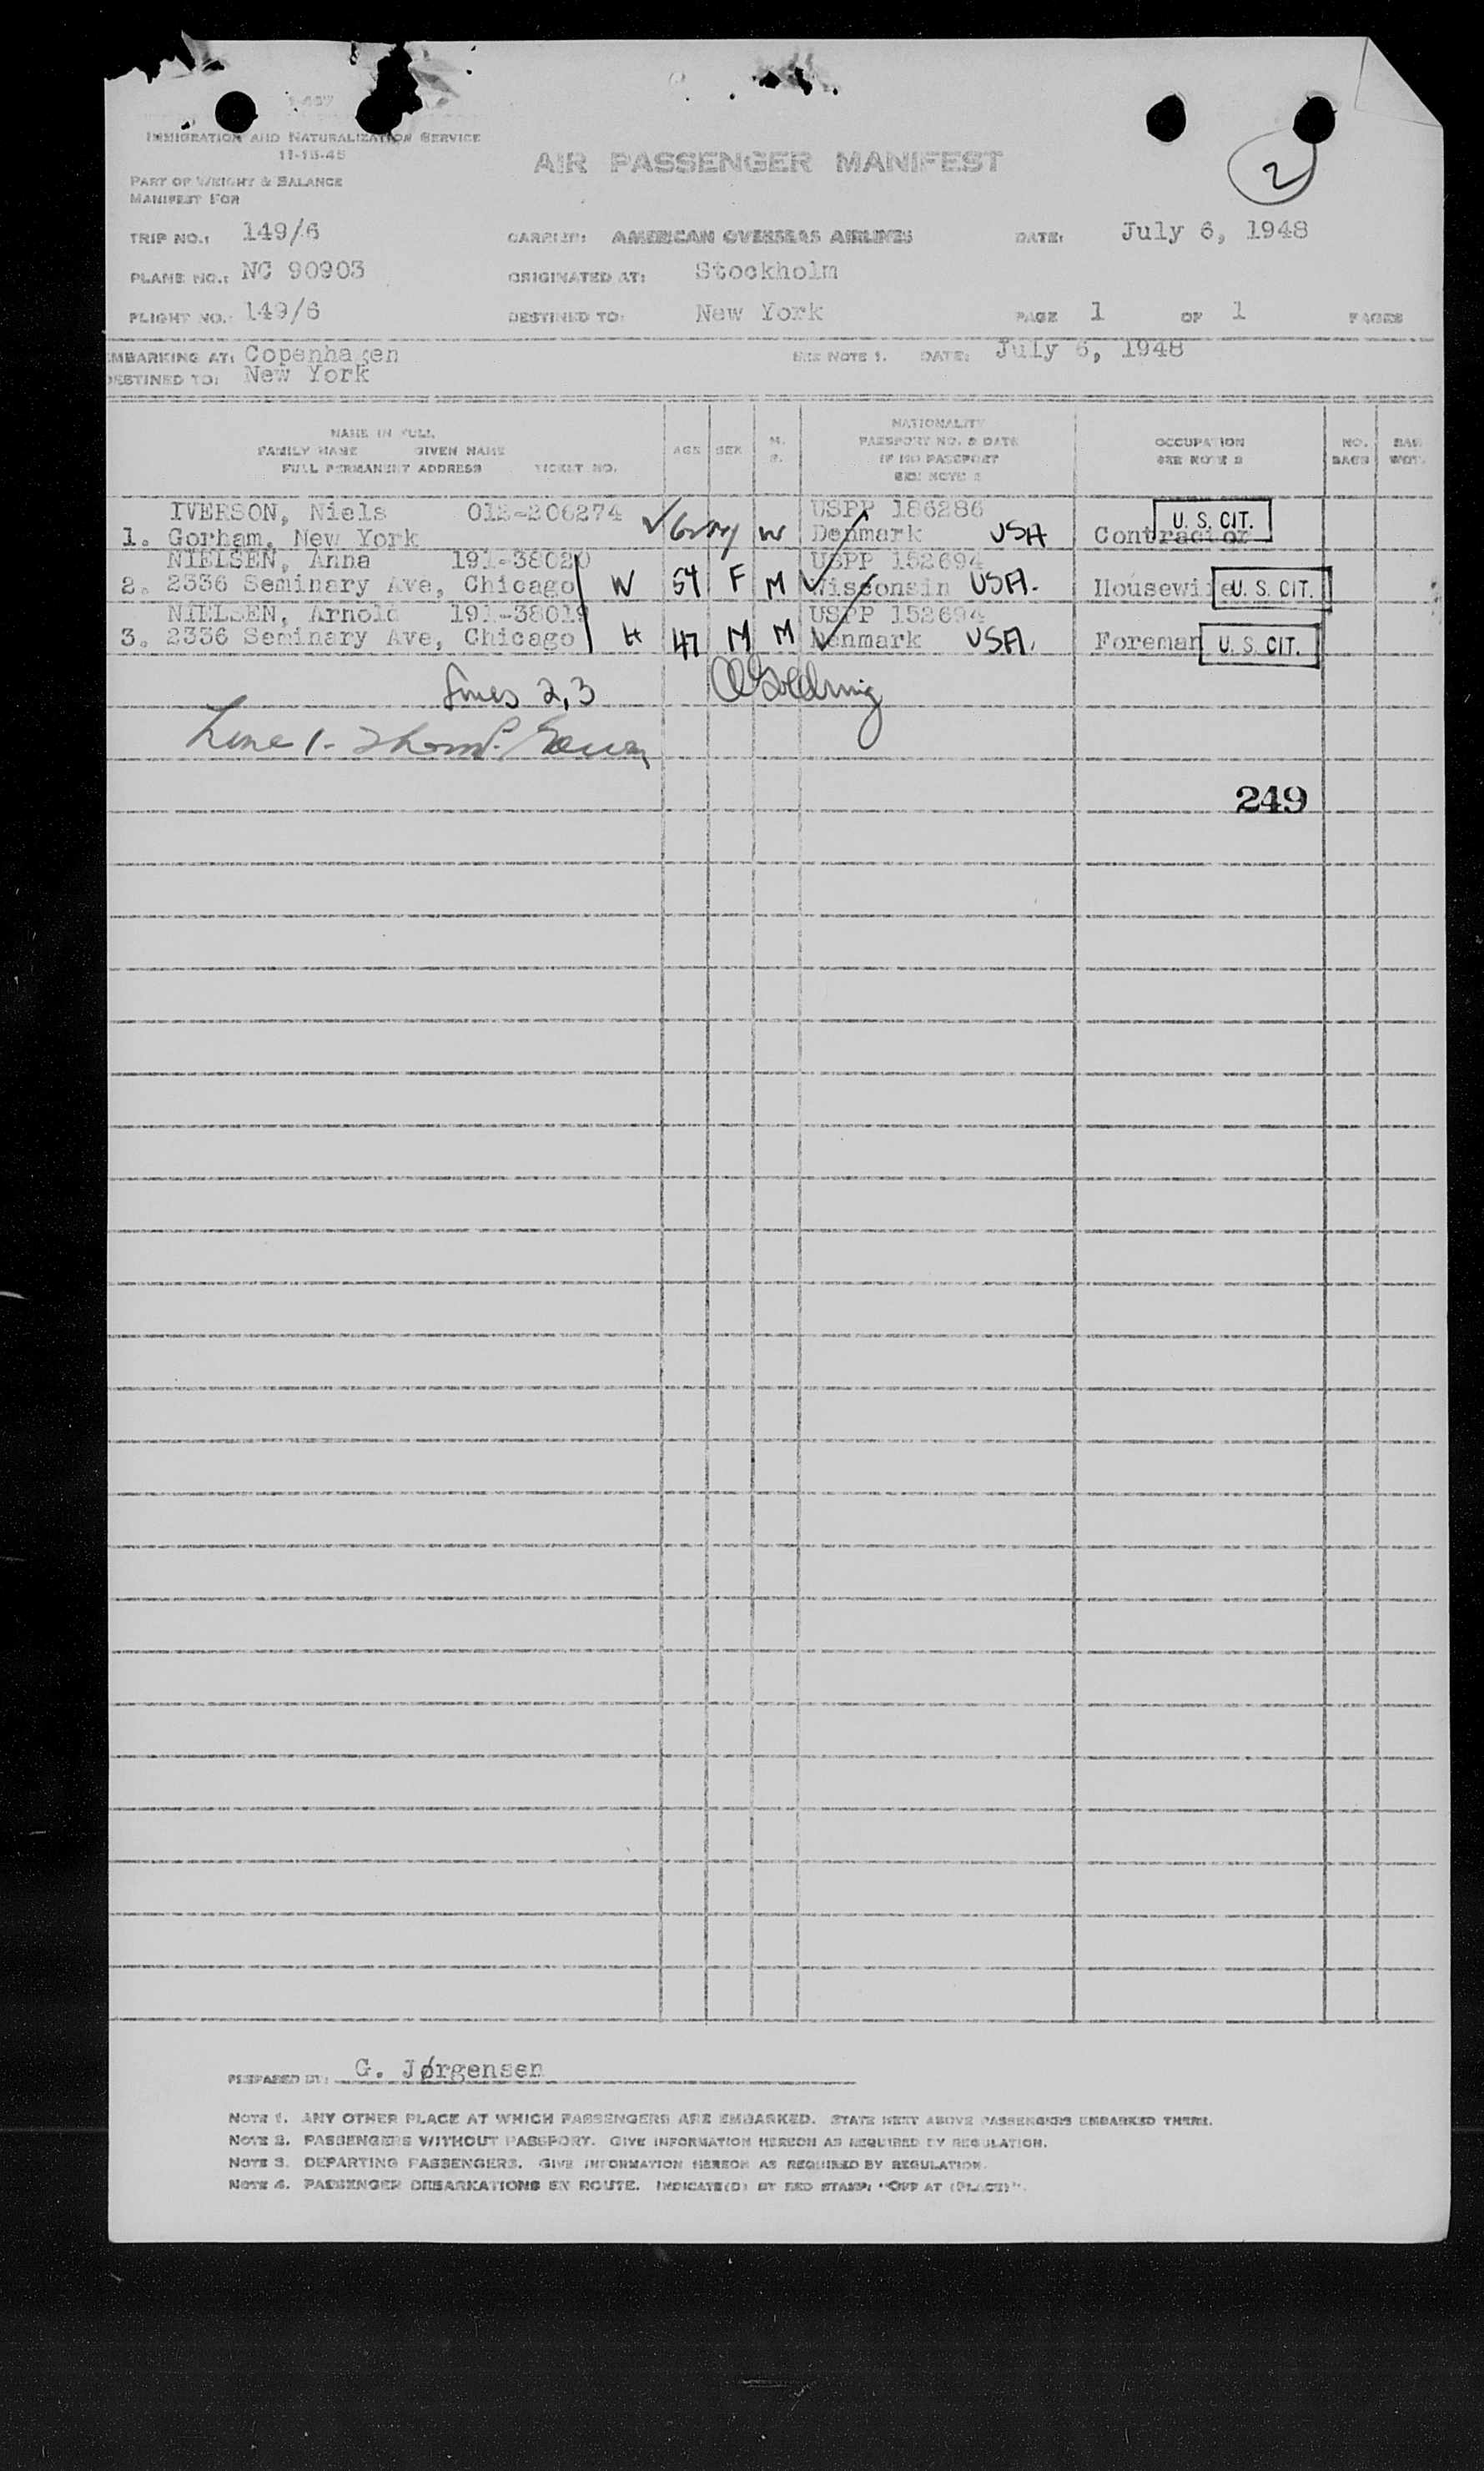 I-437
IMMIGRATION AND NATURALIZATION SERVICE
11-15-45
AIR PASSENGER MANIFEST
2
PART OF WEIGHT & BALANCE
MANIFEST FOR
TRIP NO.: 149/6 CARRIER: AMERICAN OVERSEAS AIRLINES DATE: July 6, 1948
PLANE NO.: NC 90903 ORIGINATED AT: Stockholm
FLIGHT NO. 149/6 DESTINED TO: New York PAGE 1 OF 1 PAGES
EMBARKING AT: Copenhagen SEE NOTE 1. DATE: July 6, 1948
DESTINED TO: New York
NAME IN FULL
FAMILY NAME GIVEN NAME
FULL PERMANENT ADDRESS TICKET NO.
AGE SEX M. S.
NATIONALITY
PASSPORT NO. & DATE
IF NO PASSPORT
SEE NOTE 2
OCCUPATION
SEE NOTE 3
NO. BAGS
BAG. WGT.
IVERSON, Niels USPP 186286
1. Gorham, New York W Denmark USA Contractor U. S. CIT.
NIELSEN, Anna 191-38020 USPP 152694
2. 2336 Seminary Ave, Chicago W 54 F M Wisconsin USA. Housewife U. S. CIT.
NIELSEN, Arnold 191-38019 USPP 152694
3. 2336 Seminary Ave, Chicago H 47 M M Denmark USA. Foreman U. S. CIT.
Lines 2,3
Line 1-
249
PREPARED BY: G. Jørgensen
NOTE 1. ANY OTHER PLACE AT WHICH PASSENGERS ARE EMBARKED. STATE NEXT ABOVE PASSENGERS EMBARKED THERE.
NOTE 2. PASSENGERS WITHOUT PASSPORT. GIVE INFORMATION HEREON AS REQUIRED BY REGULATION.
NOTE 3. DEPARTING PASSENGERS. GIVE INFORMATION HEREON AS REQUIRED BY REGULATION.
NOTE 4. PASSENGER DEBARKATIONS EN ROUTE. INDICATE(D) BY RED STAMP: "OFF AT (PLACE)".